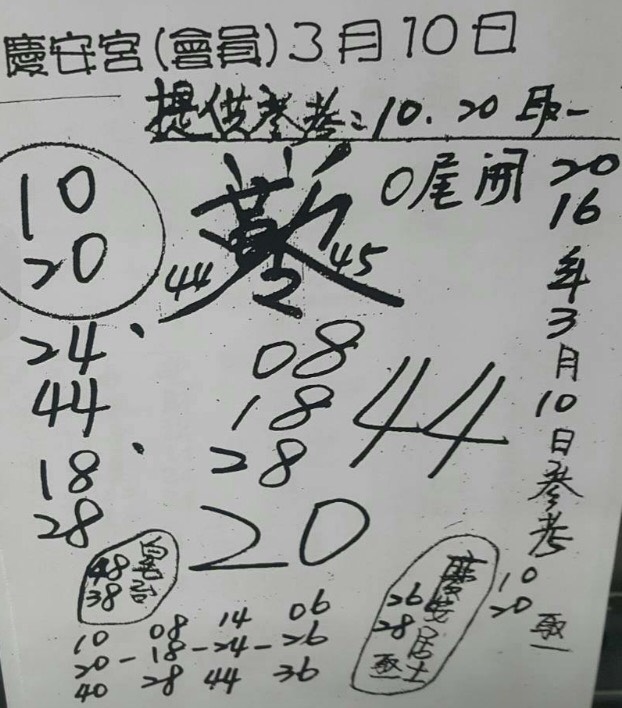 慶安宮(會員)3月10日
提供參考:10.20取一
0尾開
10
20
44
45
24、
44
18、
28
08
18
28
44
20
2016年3月10日參考
10
20
48
38
慶安居士
26
28
10 08 14 06
20-18-24-26
40 28 44 36